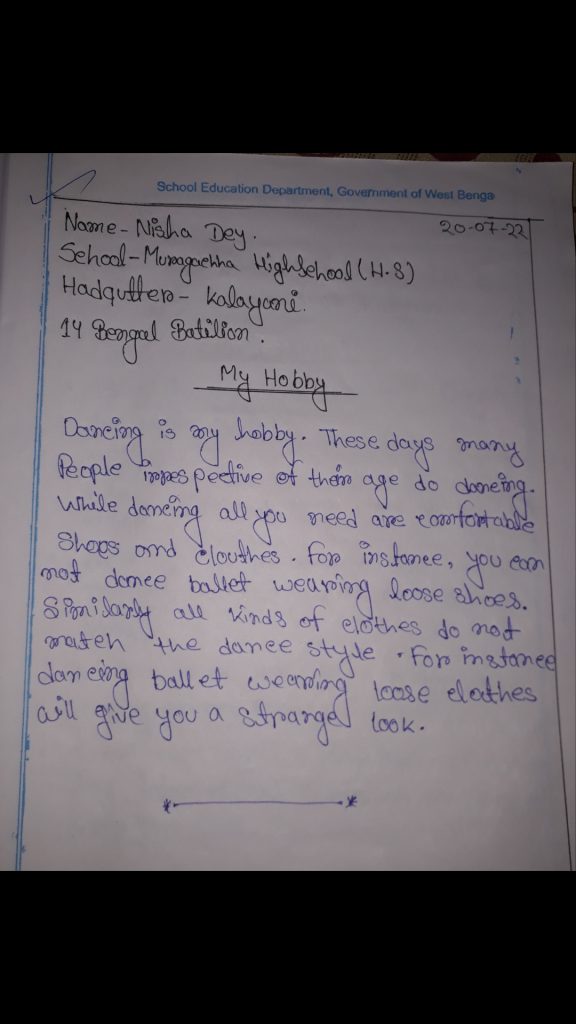 School Education Department, Government of West Benga
20-07-22
Name- Nisha Dey.
School- Muragachha High School (H.S)
Hadqutter- Kalayani.
14 Bengal Batilion.
My Hobby
Dancing is my hobby. These days many
People irrespective of their age do dancing.
While dancing all you need are comfortable
Shoes and clouthes. For instance, you can
not dance ballet wearing loose shoes.
Similarly all kinds of clothes do not
match the dance style. For instance
dancing ballet wearing loose clathes
will give you a strange look.